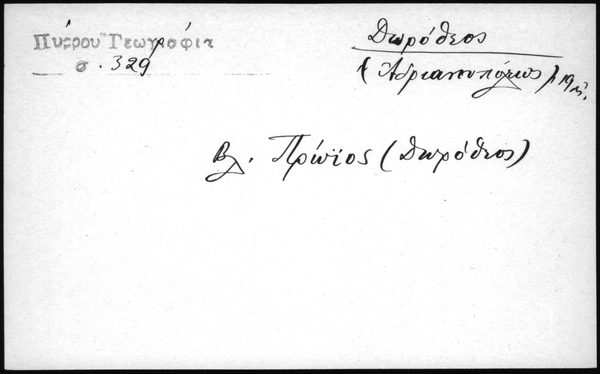 Πύρρου Γεωγραφία
σ. 329
Δωρόθεος
(Αδριανουπόλεως) 19
Βλ. Πρώϊος (Δωρόθεος)